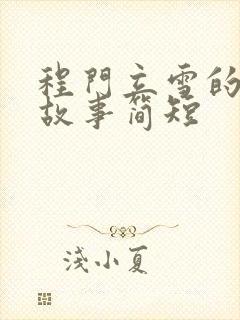 程門立雪的
故事簡短
淺小夏